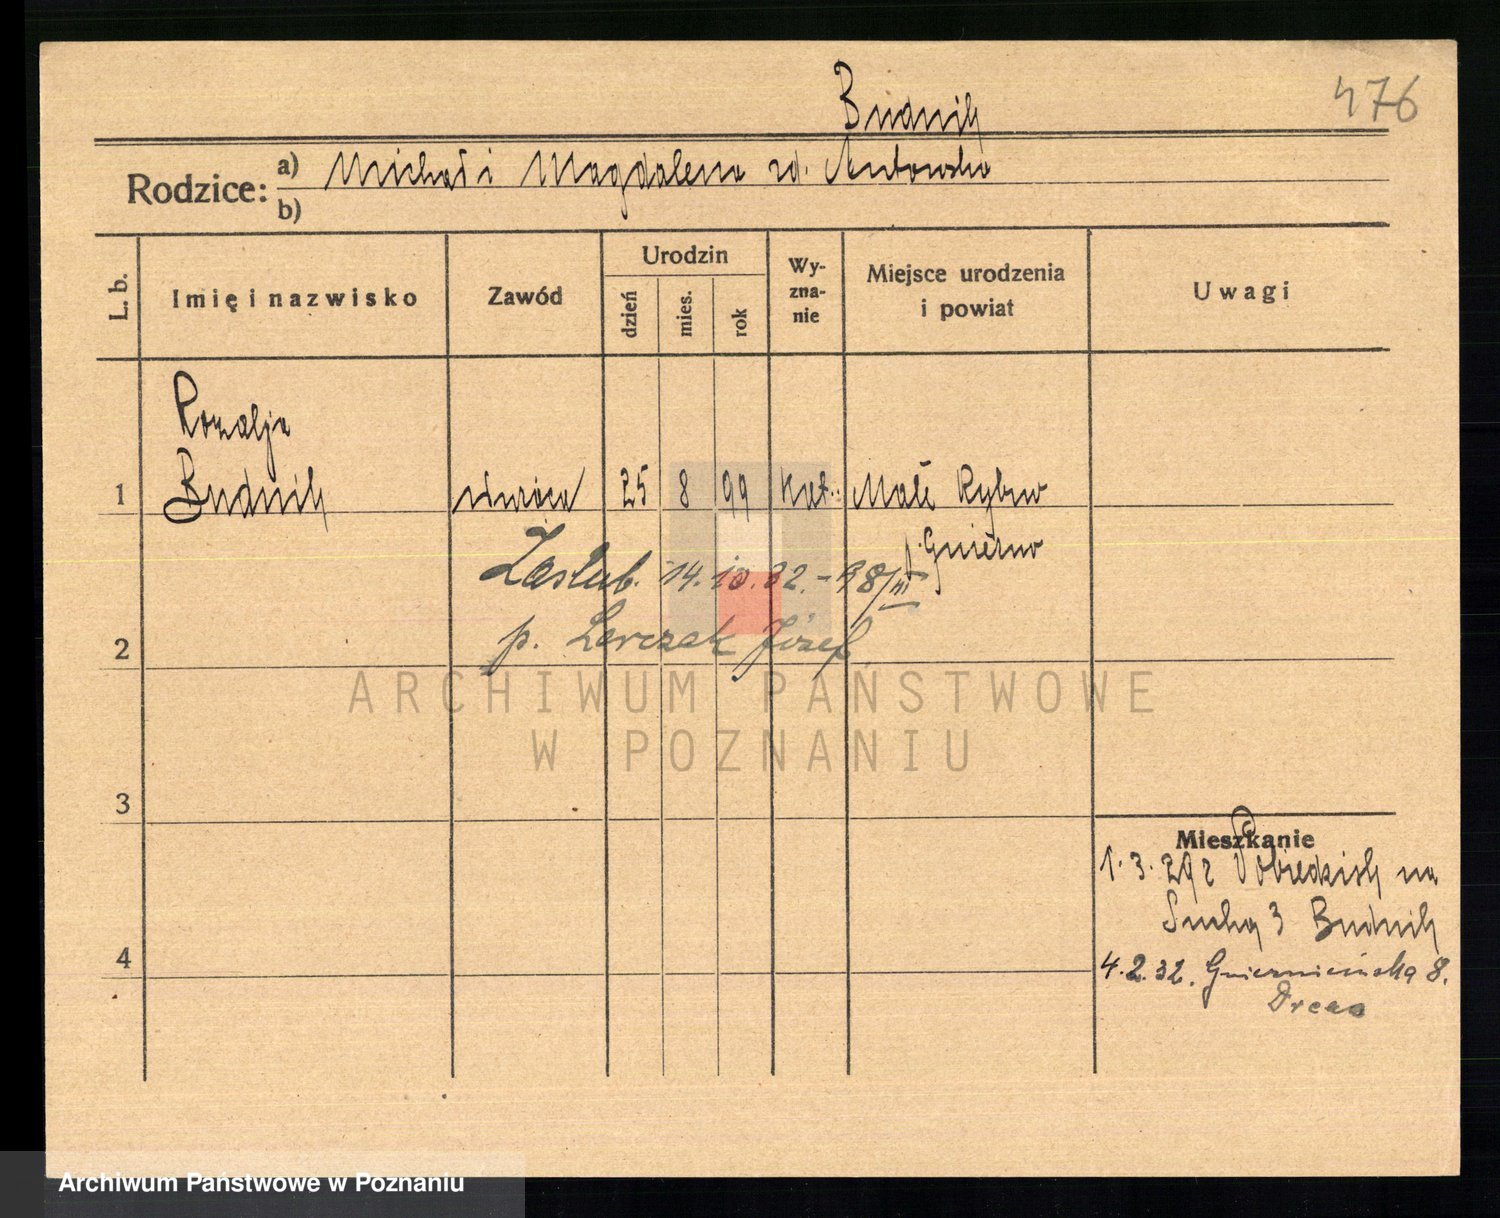 Budnik
476
Rodzice: a) Michał i Magdalena zd. Antowska
b)
L. b.
Imię i nazwisko
Zawód
Urodzin
dzień
mies.
rok
Wy-
zna-
nie
Miejsce urodzenia
i powiat
Uwagi
Rozalja
1 Budnik 25 8 99 kat. Małe Rybno
p. Gniezno
Zaślub. 14.10.32. - 98/III
2 p. Larczak Józef
ARCHIWUM PAŃSTWOWE
W POZNANIU
3
Mieszkanie
1.3.29 z Pobiedzisk na
Suchą 3 Budnik
4
4.2.32. Gnieźnieńska 8.
Archiwum Państwowe w Poznaniu